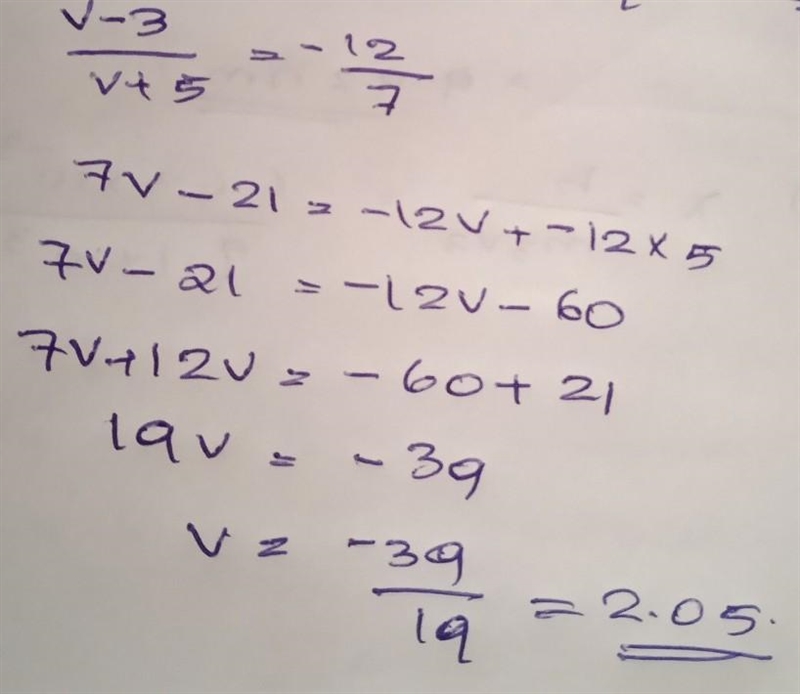 v-3 / v+5 = -12 / 7
7v - 21 = -12v + -12 × 5
7v - 21 = -12v - 60
7v+12v = -60+21
19v = -39
v = -39 / 19 = 2.05.